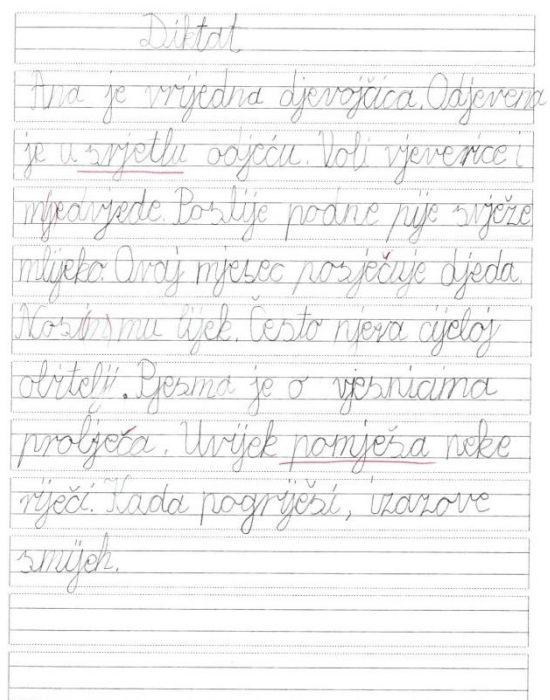 Diktat
Ana je vrijedna djevojčica. Odjevena
je u svjetlu odjeću. Voli vjeverice i
mjedvjede. Poslije podne pije svježe
mlijeko. Ovaj mjesec posječuje djeda.
Nosi mu lijek. Često pjeva cijeloj
obitelji. Pjesma je o vjesnicima
proljeća. Uvijek pomješa neke
riječi. Kada pogriješi, izazove
smijeh.